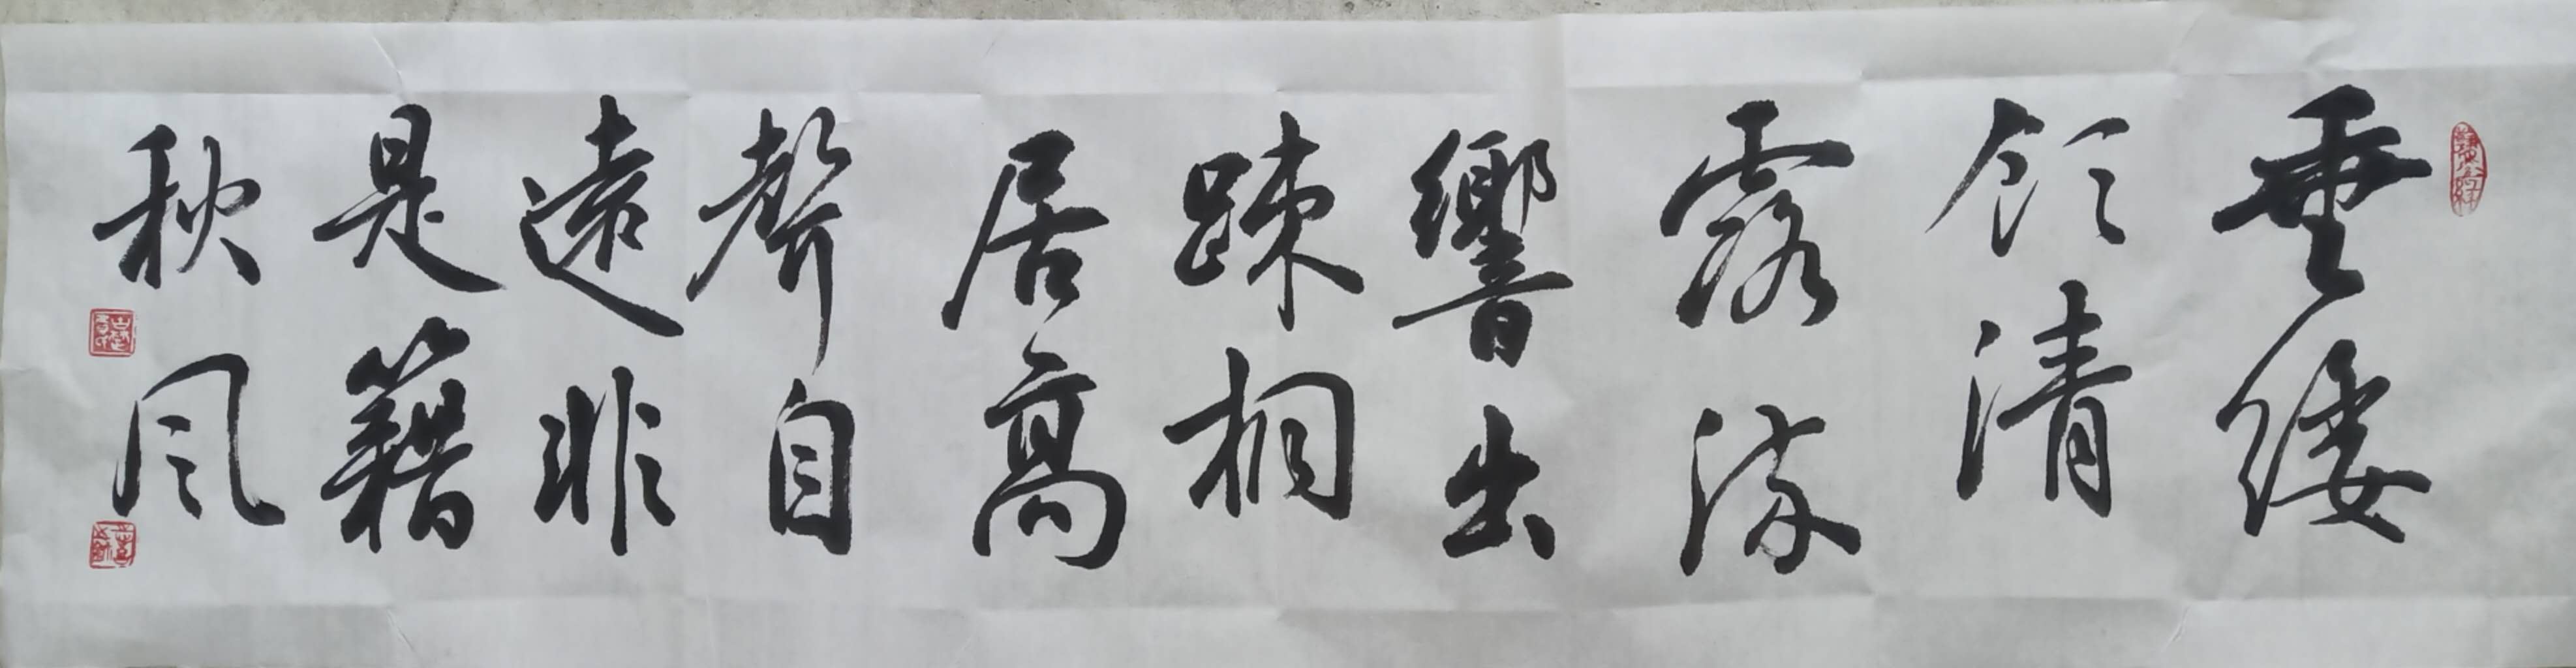 垂緌
飲清
露流
響出
踈桐
居高
聲自
遠非
是籍
秋風